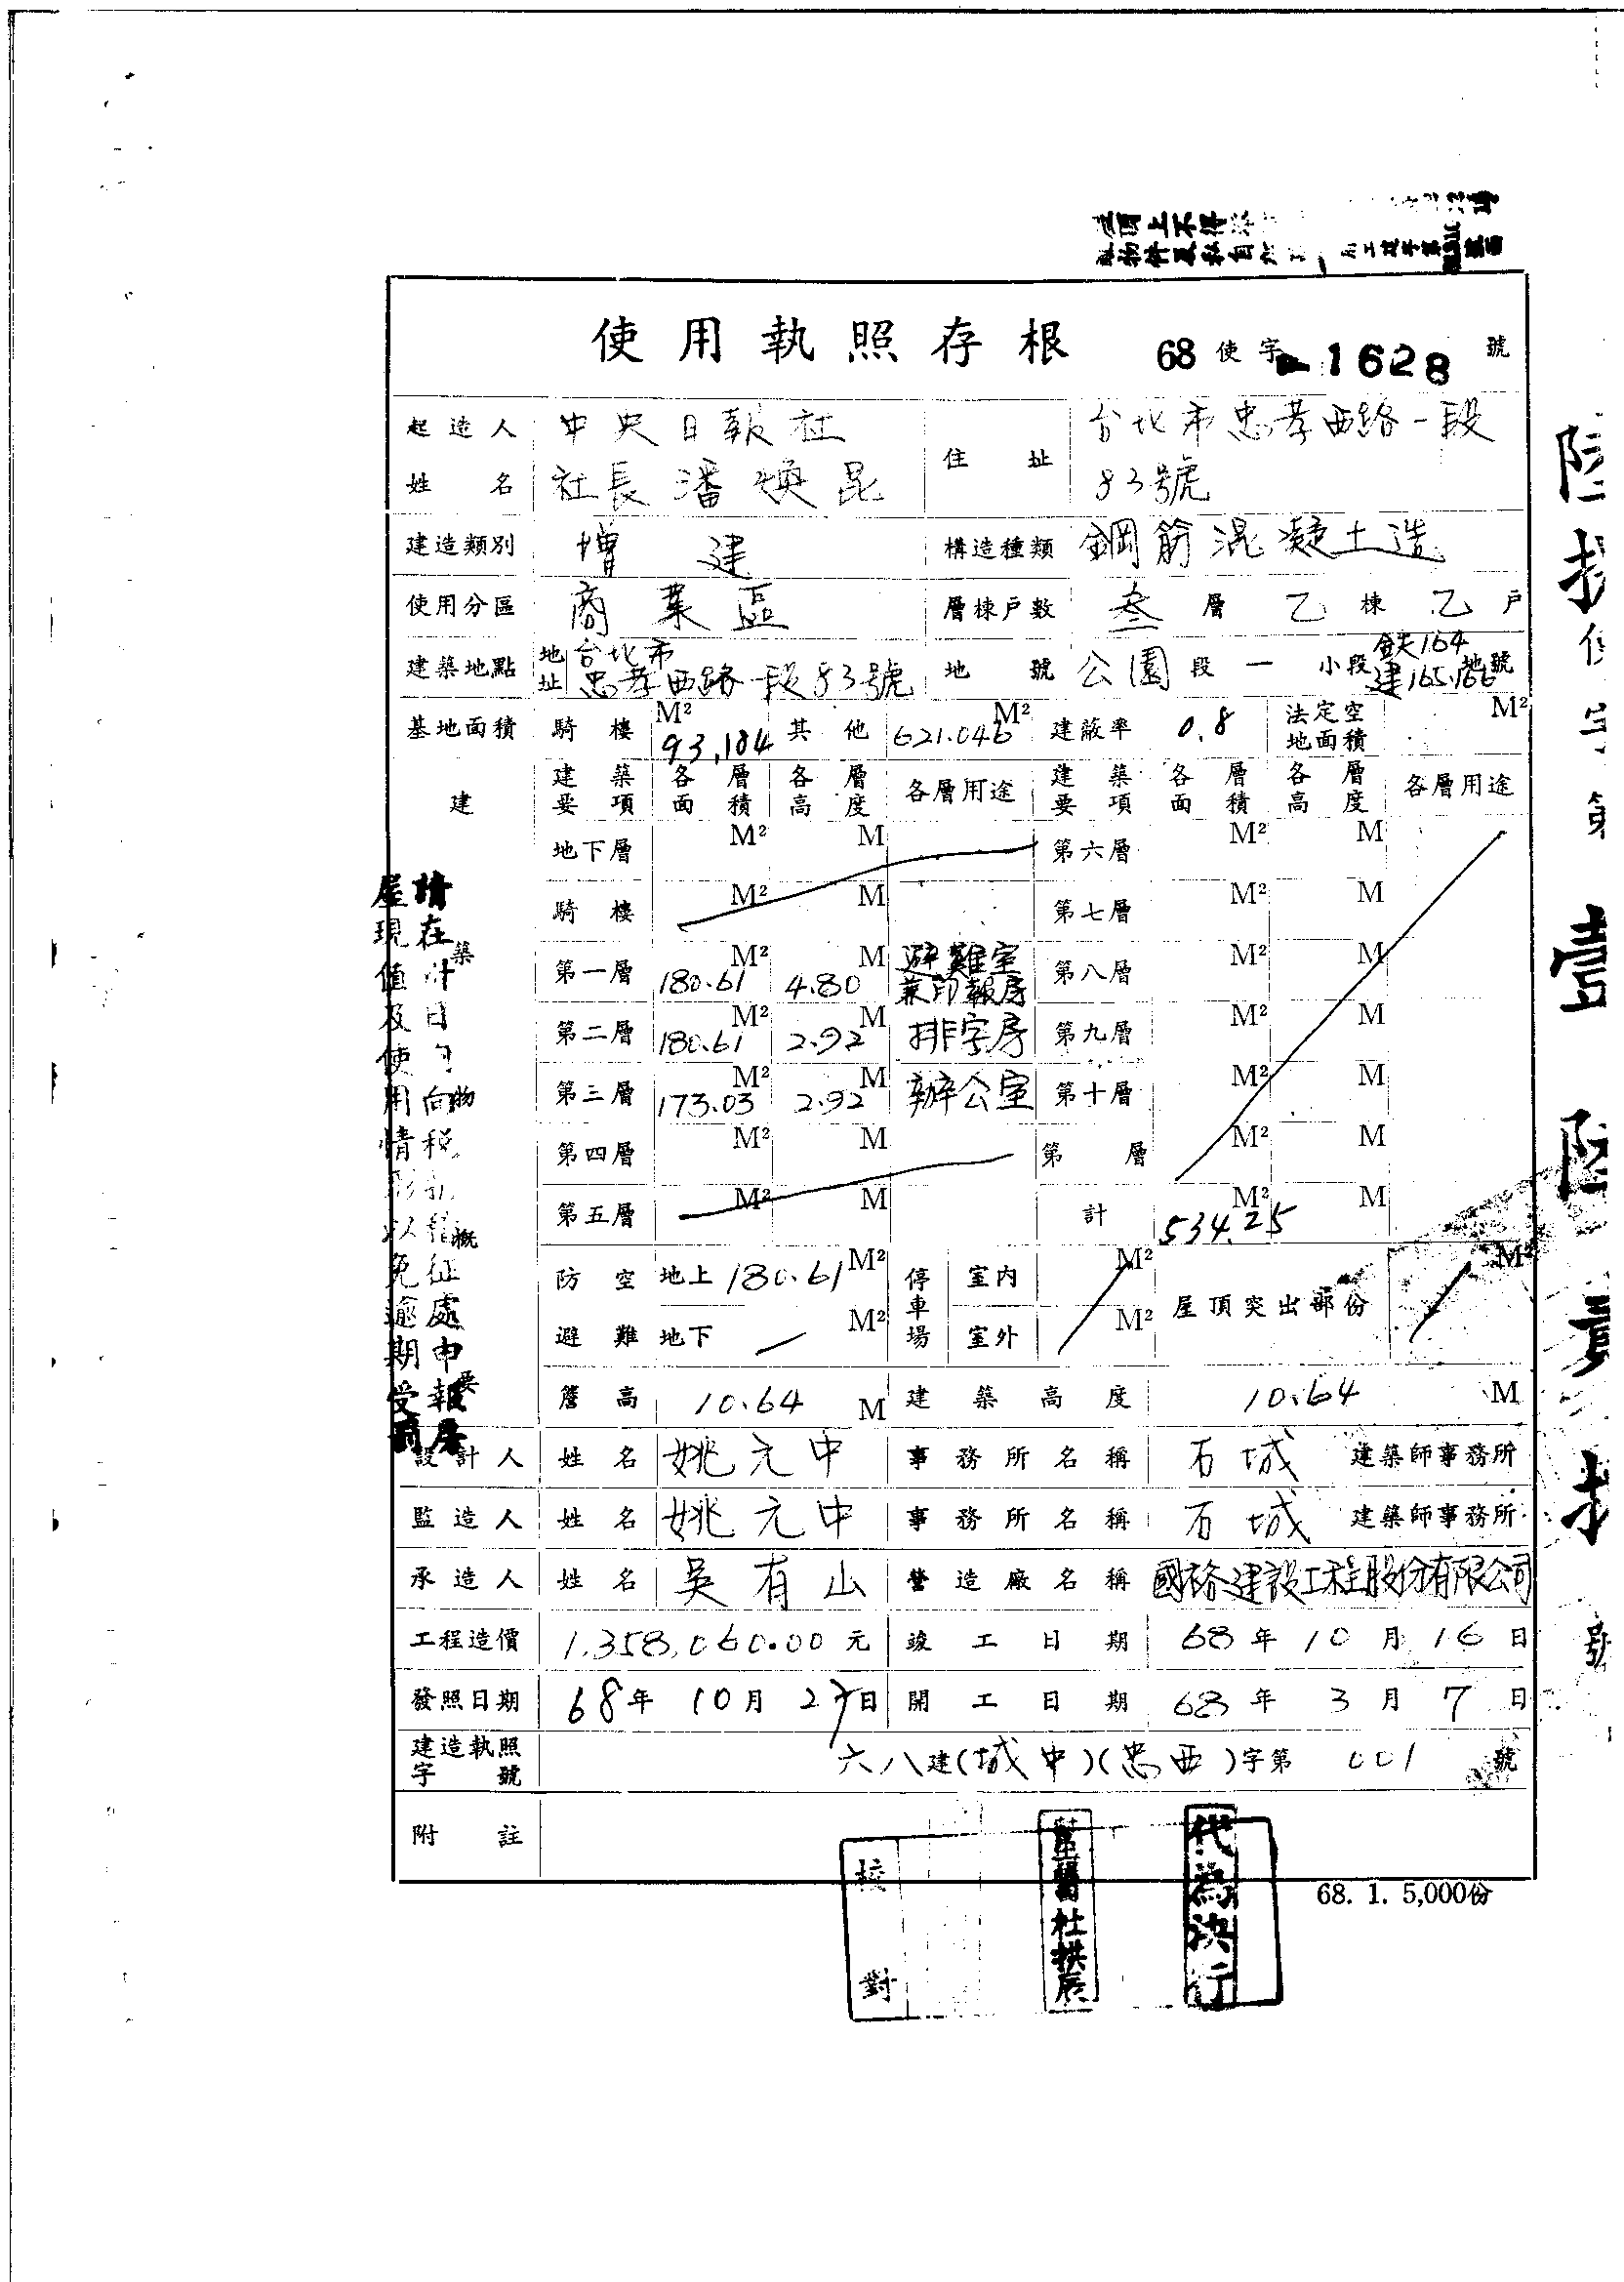 使用執照存根 68使字 1628 號
起造人姓名 中央日報社 社長潘煥昆 住址 台北市忠孝西路一段83號
建造類別 增建 構造種類 鋼筋混凝土造
使用分區 商業區 層棟戶數 叁層乙棟乙戶
建築地點 地址 台北市忠孝西路一段83號 地號 公園段一小段 164 建165.166地號
基地面積 騎樓 93.184 M² 其他 621.046 M² 建蔽率 0.8 法定空地面積 M²
建築物概要
建築要項 各層面積 各層高度 各層用途 建築要項 各層面積 各層高度 各層用途
地下層 M² M 第六層 M² M
騎樓 M² M 第七層 M² M
第一層 180.61 M² 4.80 M 避難室兼印報房 第八層 M² M
第二層 180.61 M² 2.92 M 排字房 第九層 M² M
第三層 173.03 M² 2.92 M 辦公室 第十層 M² M
第四層 M² M 第 層 M² M
第五層 M² M 計 534.25 M² M
防空避難 地上 180.61 M² 停車場 室內 M² 屋頂突出部份 M²
地下 M² 室外 M²
簷高 10.64 M 建築高度 10.64 M
設計人 姓名 姚元中 事務所名稱 石城 建築師事務所
監造人 姓名 姚元中 事務所名稱 石城 建築師事務所
承造人 姓名 吳有山 營造廠名稱 國裕建設工程股份有限公司
工程造價 1,358,060.00元 竣工日期 68年10月16日
發照日期 68年10月27日 開工日期 68年3月7日
建造執照字號 六八建(城中)(忠西)字第001號
附註
68. 1. 5,000份
校對
代為決行